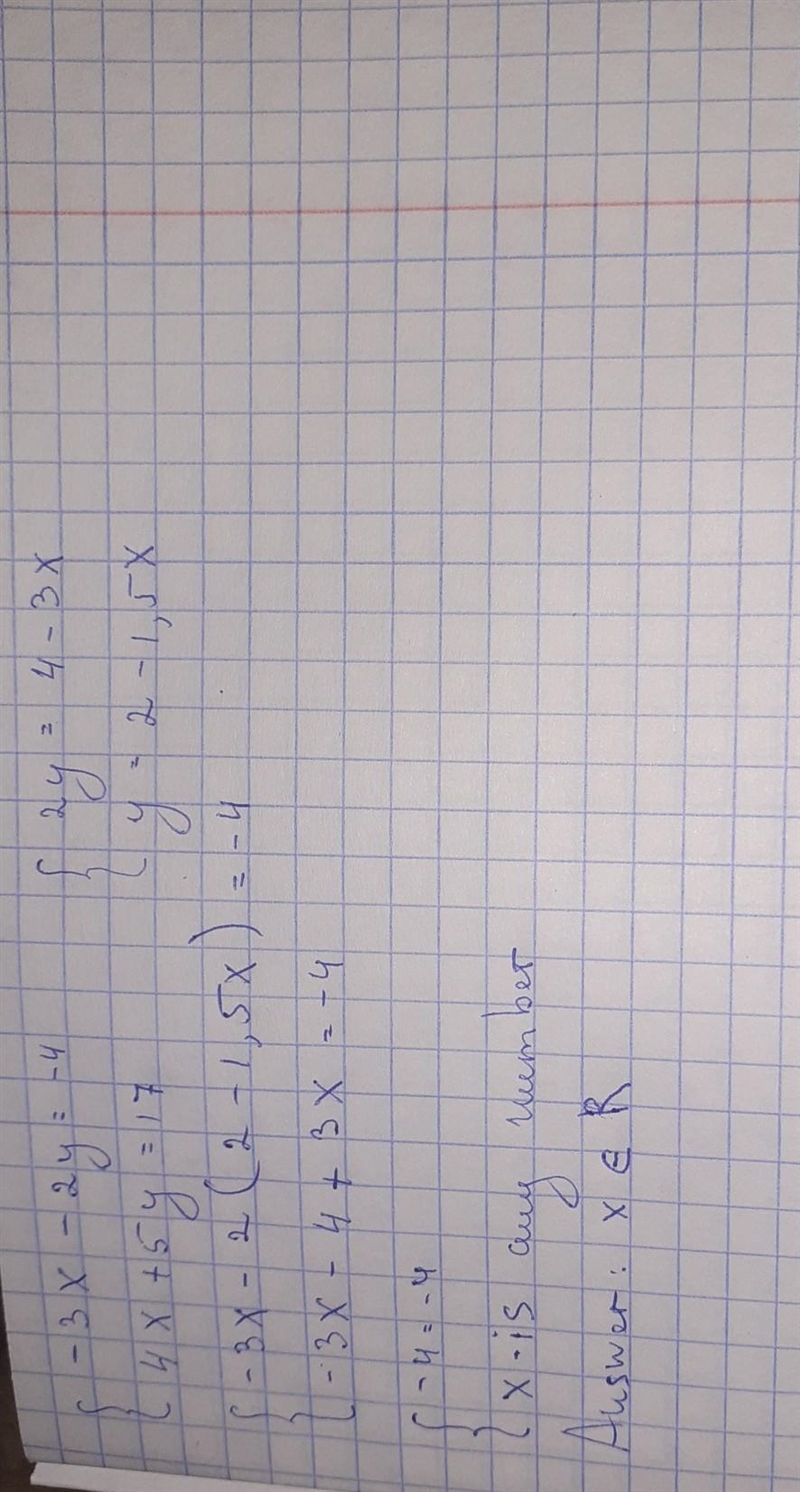 { -3x - 2y = -4 { 2y = 4 - 3x
{ 4x + 5y = 17 { y = 2 - 1,5x
{ -3x - 2(2 - 1,5x) = -4
{ -3x - 4 + 3x = -4
{ -4 = -4
{ x - is any number
Answer: x ∈ R